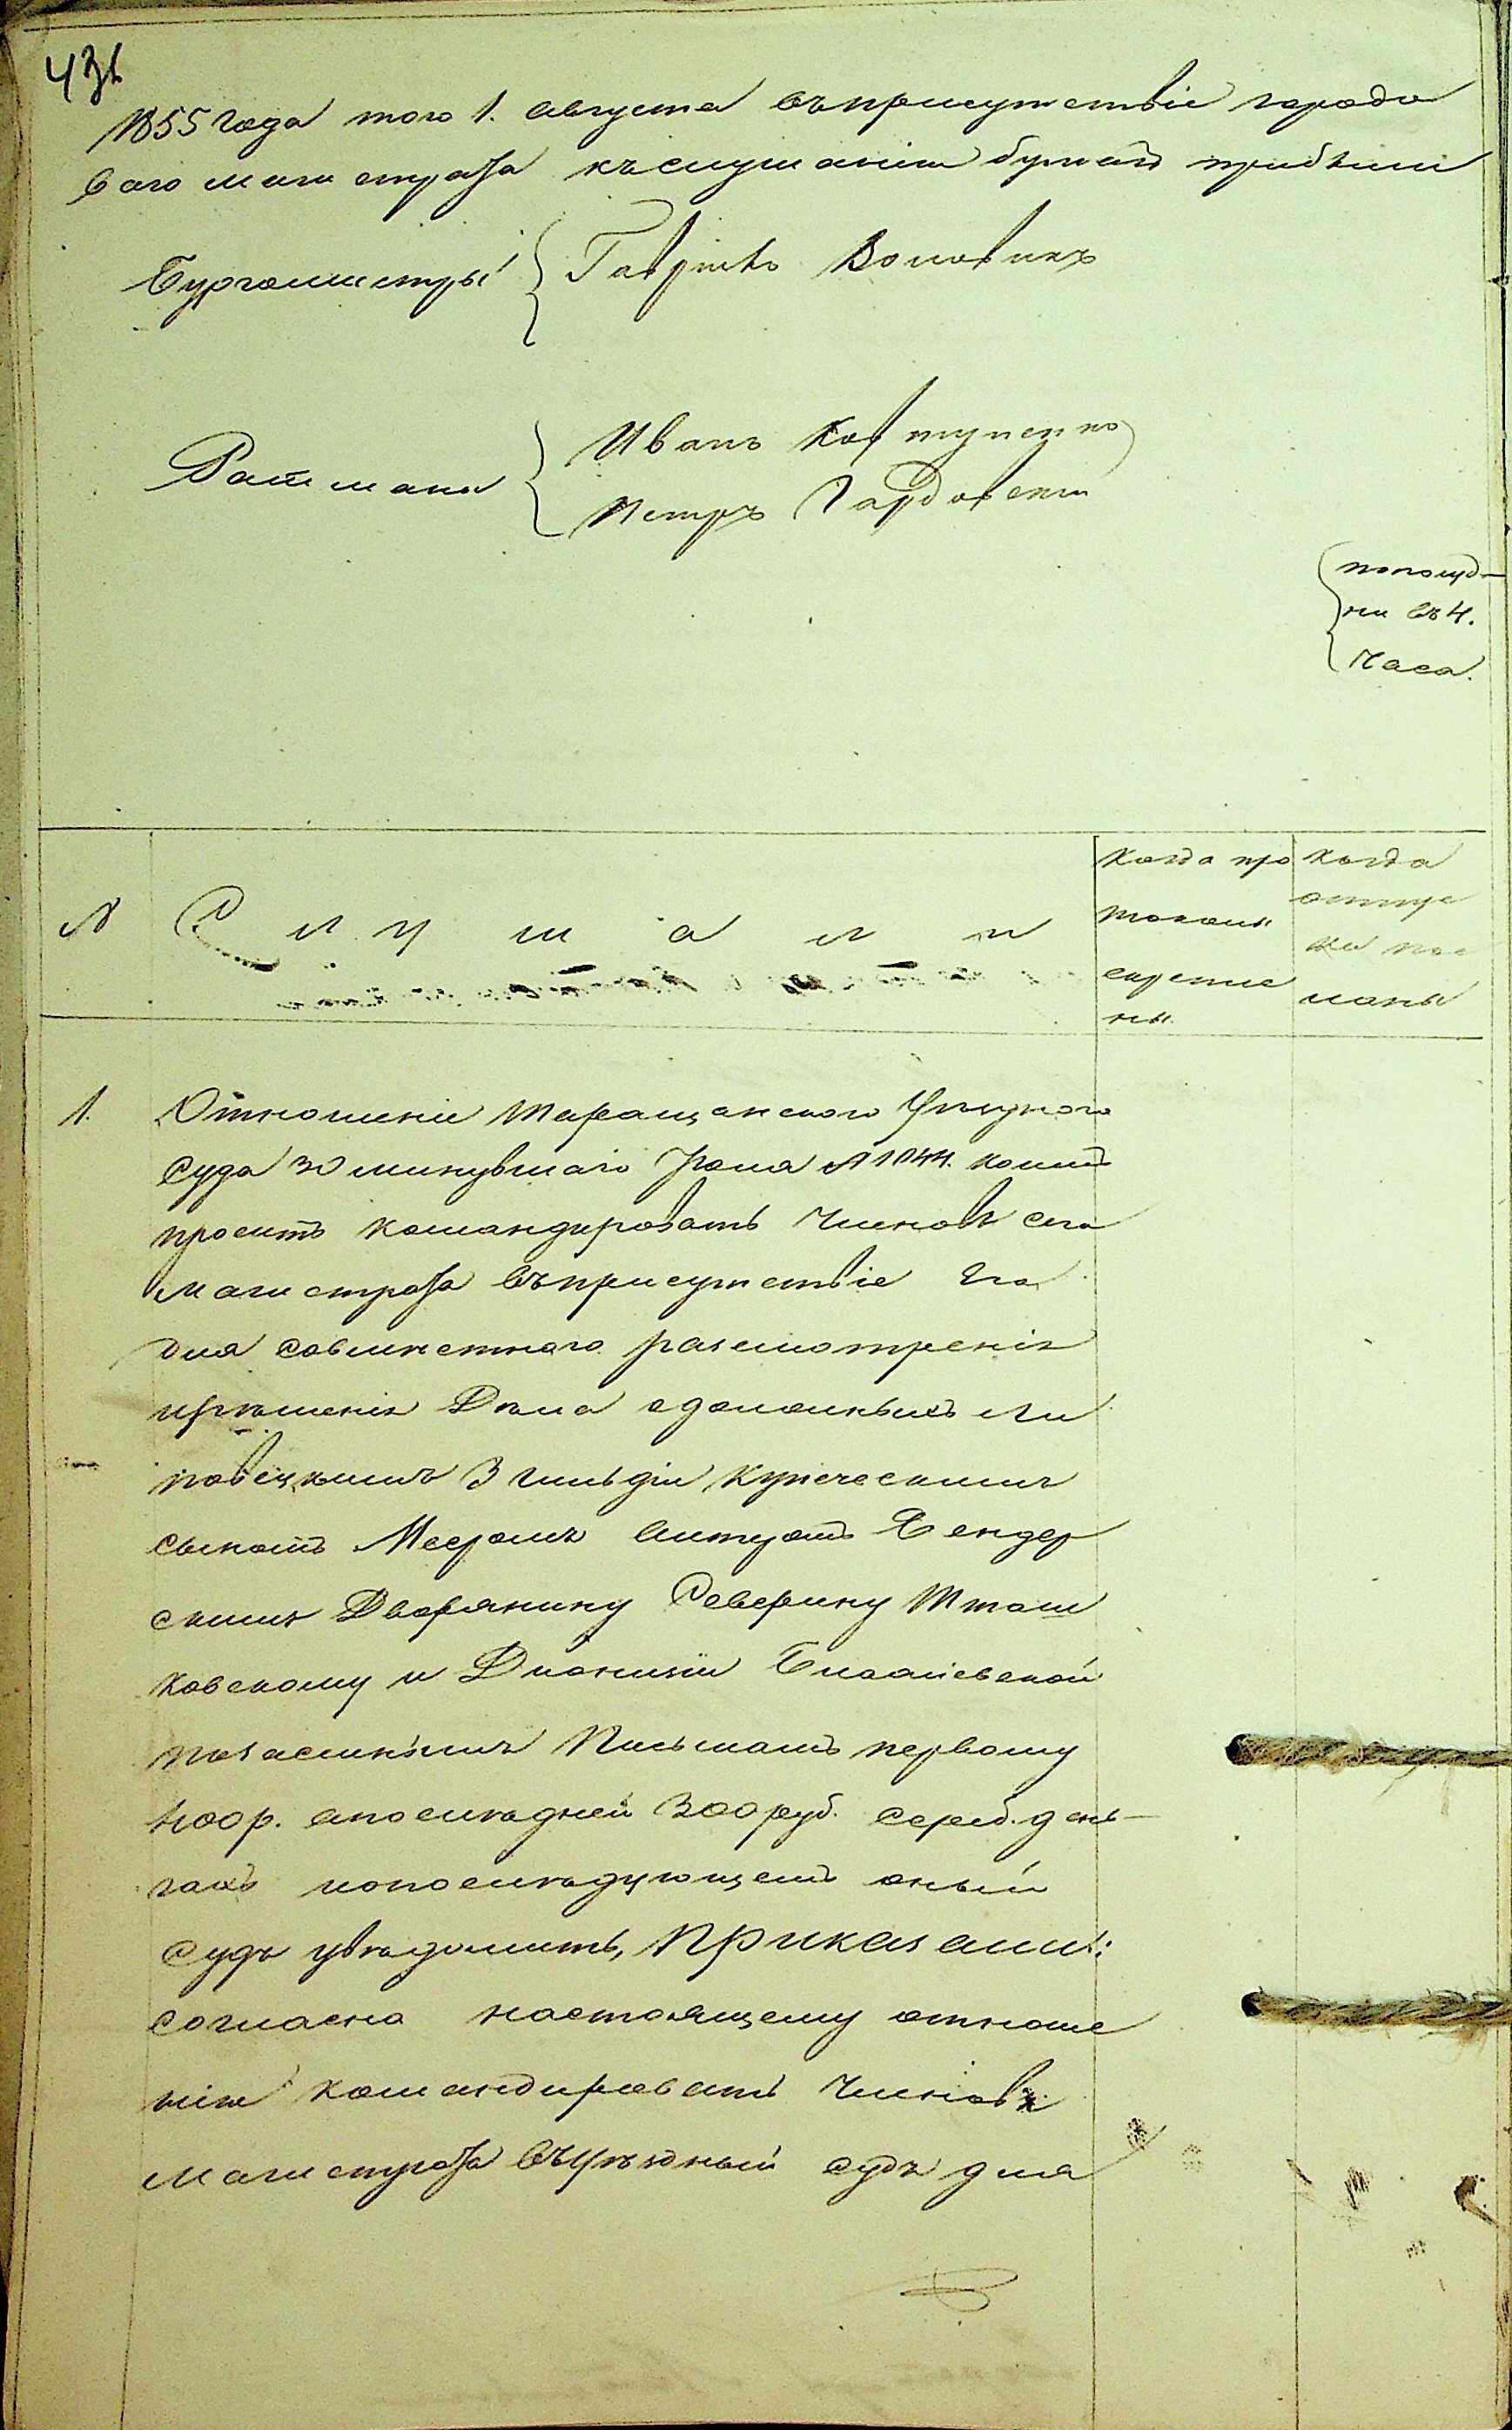 431
1855 года того 1. августа въприсутствіе городо
ваго магистрата къслушанію бумагъ прибыли
Бургомистры { Гаврило Воловикъ
Ратманы { Иванъ Ковтуненко
Петръ Гардовскій
пополуд-
ни въ 4.
Часа.
№ Слушали
Когда про
токолы
скрепле
ны.
Когда
отпус
ки пос
ланы
1. Отношеніе Таращанского Уѣзднаго
Суда 30 минувшаго Іюля № 1044. коимъ
проситъ командировать Членовъ сего
магистрата въприсутствіе Его
для совместного разсмотренія
ирѣшенія Дѣла одолжныхъ Ли
повецкимъ 3 гильдіи купеческимъ
сыномъ Мееромъ Бендер
скимъ Дворянину Северину
ковскому и Діонизіи
позаемнымъ Письмамъ первому
400 р. апослѣдней 300 руб. сереб. день-
гахъ ипослѣдующемъ оный
Судъ увѣдомить, Приказали:
Согласно настоящему отноше
нію командировать Членовъ
магистрата въУѣздный судъ для